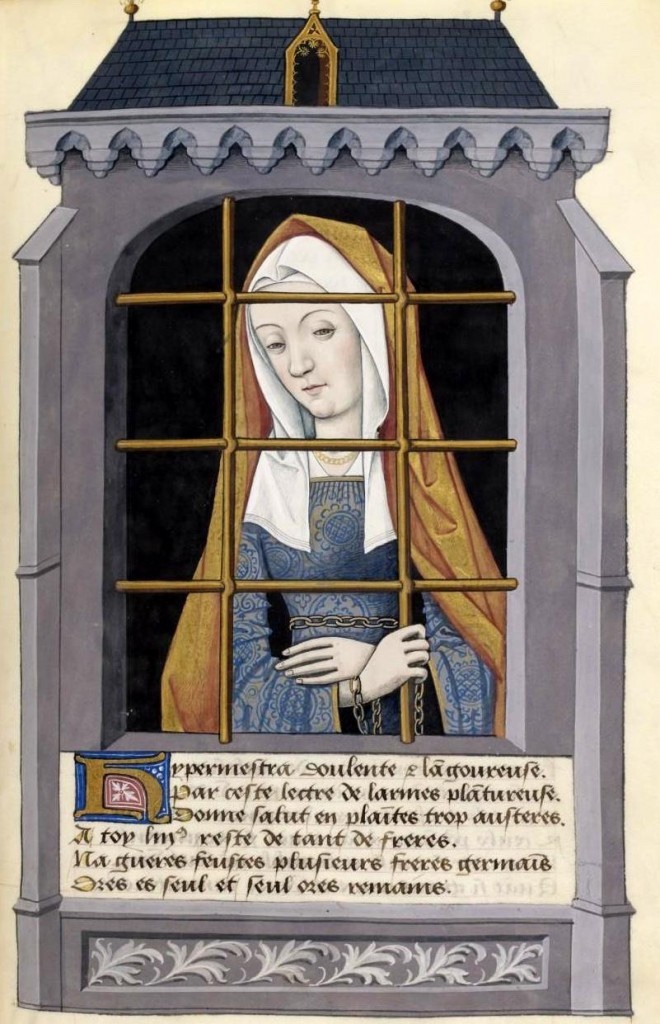 Hypermestra doulente & lãgoureuse.
Par ceste lectre de larmes plãtureuse.
Donne salut en plaītes trop austeres.
A toy reste de tant de freres.
Na gueres feustes plusieurs freres germaīs
Ores es seul et seul ores remains.